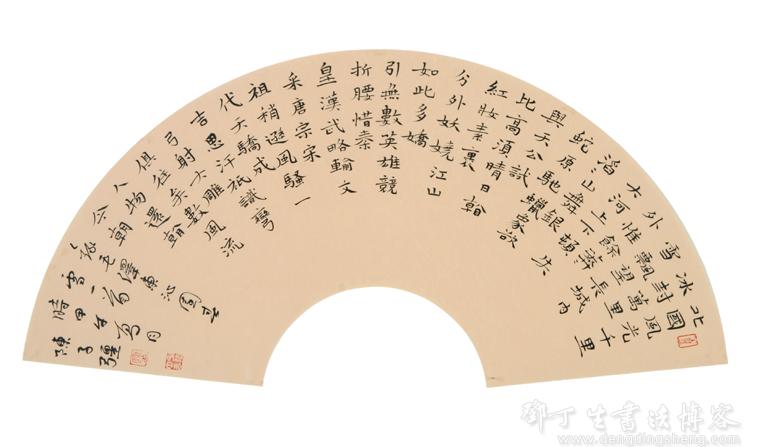 北國風光千里
冰封萬里
雪飄望長城內
外惟餘莽
大河上下頓失
滔山舞銀
蛇原馳蠟象欲
與天公試
比高須晴日看
紅妝素裹
分外妖嬈江山
如此多嬌
引無數英雄競
折腰惜秦
皇漢武略輸文
采唐宗宋
祖稍遜風騷一
代天驕成
吉思汗祇識彎
弓射大雕
俱往矣數風流
人物還看
今朝毛澤東沁園春
詠雪一首
時甲午夏月
陳子彊
鄧丁生書法博客
www.dengdingsheng.com